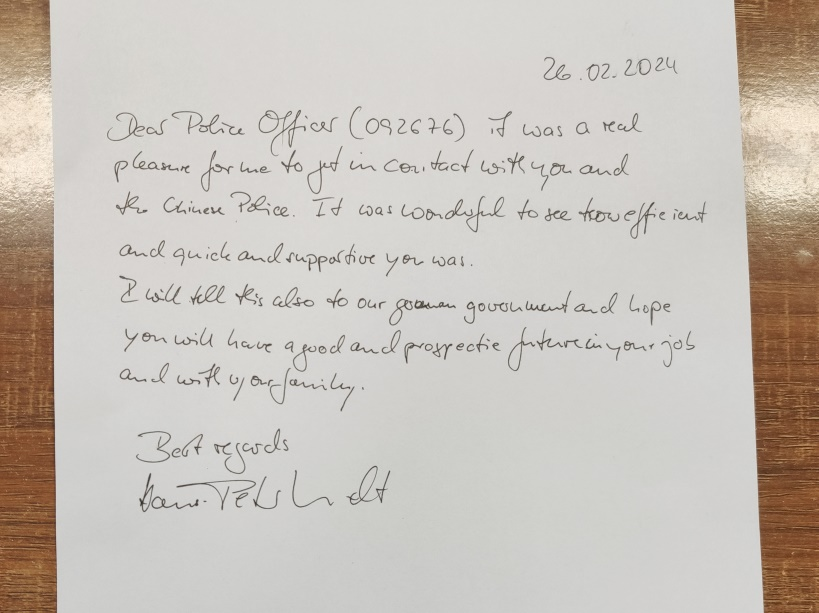 26.02.2024
Dear Police Officer (092676) it was a real
pleasure for me to get in contact with you and
the Chinese Police. It was wonderful to see how efficient
and quick and supportive you was.
I will tell this also to our german government and hope
you will have a good and prospectie future in your job
and with your family.
Best regards